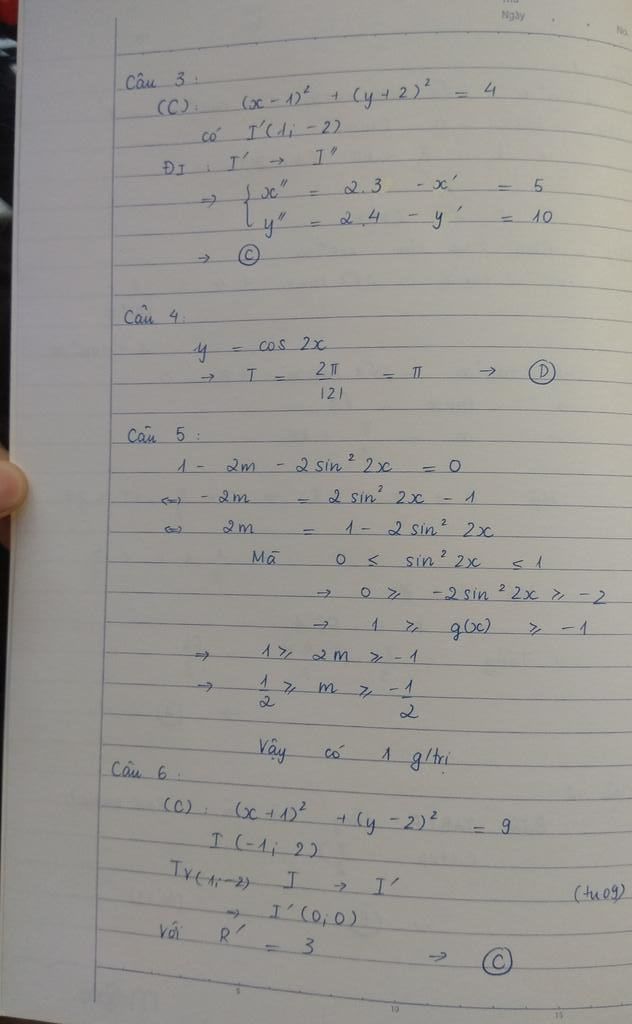 Ngày
No.
Câu 3:
(C): (x-1)² + (y+2)² = 4
có I'(1; -2)
ĐI : I' → I''
⇒ { x'' = 2.3 - x' = 5
y'' = 2.4 - y' = 10
→ Ⓒ
Câu 4:
y = cos 2x
→ T = 2π/|2| = π → Ⓓ
Câu 5:
1 - 2m - 2sin² 2x = 0
⇔ -2m = 2 sin² 2x - 1
⇔ 2m = 1 - 2 sin² 2x
Mà 0 ≤ sin² 2x ≤ 1
→ 0 ≥ -2sin² 2x ≥ -2
→ 1 ≥ g(x) ≥ -1
⇒ 1 ≥ 2m ≥ -1
→ 1/2 ≥ m ≥ -1/2
Vậy có 1 g/trị
Câu 6:
(C): (x+1)² + (y-2)² = 9
I(-1; 2)
Tv(1;-2) I → I' (tu09)
→ I'(0;0)
Với R' = 3 → Ⓒ
5 10 15